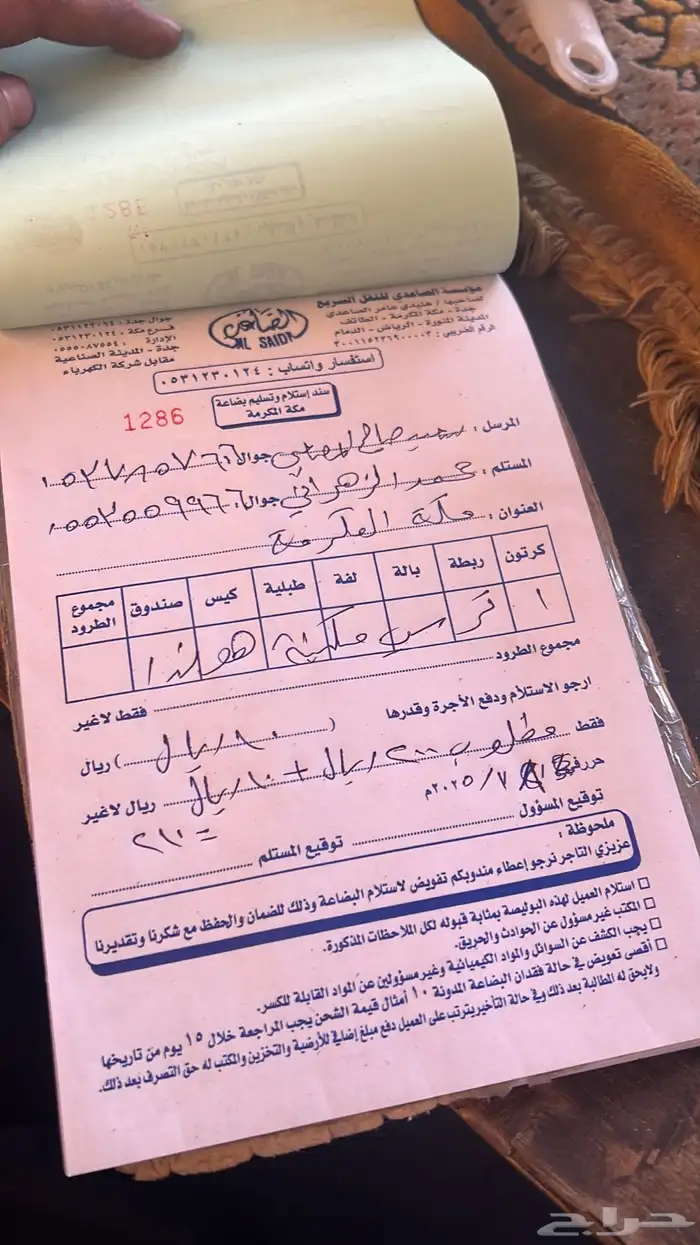 مؤسسة الصاعدي للنقل السريع
لصاحبها / هنيدي عامر الصاعدي
جدة - مكة المكرمة - الطائف
المدينة المنورة - الرياض - الدمام
الصاعدي
AL SAIDI
الإدارة : ٠٥٥٥٠٨٧٥٥٤
جدة - المدينة الصناعية
مقابل شركة الكهرباء
استفسار واتساب : ٠٥٣١٢٣٠١٢٤
سند إستلام وتسليم بضاعة
مكة المكرمة
1286
المرسل : سعيد صالح جوال :
المستلم : محمد الزهراني جوال : ٠٥٥٢٥٥٩٩٦٦
العنوان : مكة المكرمة
كرتون ربطة بالة لفة طبلية كيس صندوق مجموع الطرود
١ كرسي مكينة هوندا
مجموع الطرود فقط لاغير
ارجو الاستلام ودفع الأجرة وقدرها ( ١٠ ريال ) ريال
فقط مطلوب ٢٠٠ ريال + ١٠ ريال ريال لاغير
= ٢١٠
حرر في / ٧ / ٢٠٢٥م
توقيع المسؤول توقيع المستلم
ملحوظة :
عزيزي التاجر نرجو إعطاء مندوبكم تفويض لاستلام البضاعة وذلك للضمان والحفظ مع شكرنا وتقديرنا
استلام العميل لهذه البوليصة بمثابة قبوله لكل الملاحظات المذكورة.
المكتب غير مسؤول عن الحوادث والحريق.
يجب الكشف عن السوائل والمواد الكيميائية وغير مسؤولين عن المواد القابلة للكسر.
أقصى تعويض في حالة فقدان البضاعة المدونة ١٠ أمثال قيمة الشحن يجب المراجعة خلال ١٥ يوم من تاريخها
ولايحق له المطالبة بعد ذلك وفي حالة التأخير يترتب على العميل دفع مبلغ إضافي للأرضية والتخزين والمكتب له حق التصرف بعد ذلك.
حراج